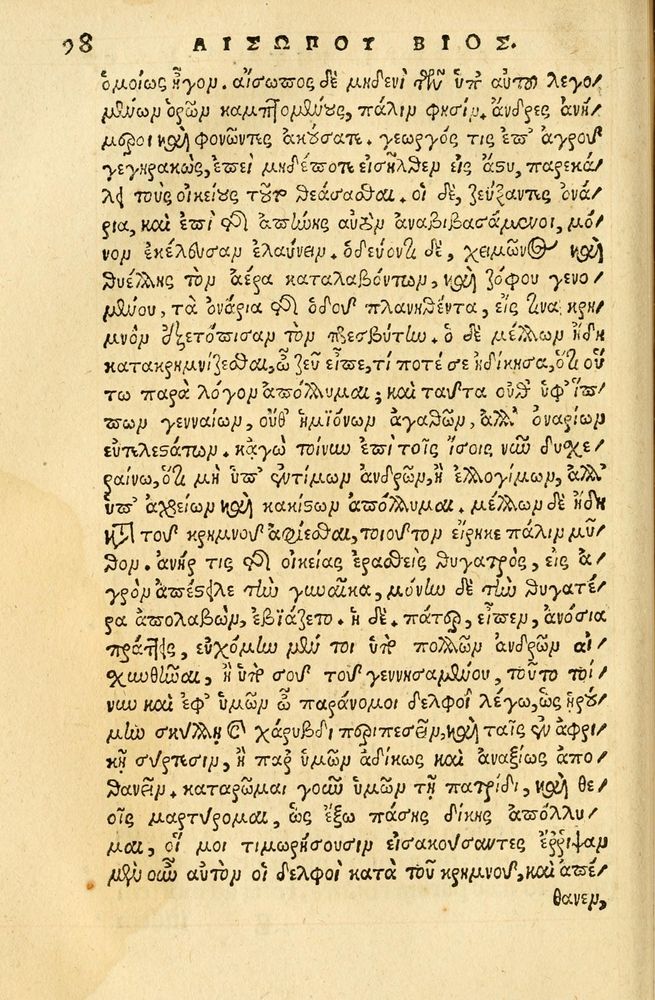 98 ΑΙΣΩΠΟΥ ΒΙΟΣ.
ὁμοίως ἦγον. αἴσωπος δὲ μηδενὶ τῶν ὑπ' αὐτοῦ λεγο/
μένων ὁρῶν καμπτομένους, πάλιν φησίν. ἄνδρες ἀνή/
μεροι καὶ φονῶντες ἀκούσατε. γεωργός τις ἐπ' ἀγροῦ
γεγηρακὼς, ἐπεὶ μηδέποτε εἰσῆλθεν εἰς ἄστυ, παρεκά/
λει τοὺς οἰκείους τοῦτο θεάσασθαι. οἱ δὲ, ζεύξαντες ὀνά/
ρια, καὶ ἐπὶ τῆς ἀπήνης αὐτὸν ἀναβιβασάμενοι, μό/
νον ἐκέλευσαν ἐλαύνειν. ὁδεύοντι δὲ, χειμῶνος καὶ
θυέλλης τὸν ἀέρα καταλαβόντων, καὶ ζόφου γενο/
μένου, τὰ ὀνάρια τῆς ὁδοῦ πλανηθέντα, εἴς τινα κρη/
μνὸν ἐξετόπισαν τὸν πρεσβύτην. ὁ δὲ μέλλων ἤδη
κατακρημνίζεσθαι, ὦ ζεῦ εἶπε, τί ποτέ σε ἠδίκησα, ὅτι οὕ
τω παρὰ λόγον ἀπόλλυμαι; καὶ ταῦτα οὔθ' ὑφ' ἵπ/
πων γενναίων, οὔθ' ἡμιόνων ἀγαθῶν, ἀλλ' ὀναρίων
εὐτελεστάτων. κἀγὼ τοίνυν ἐπὶ τοῖς ἴσοις νῦν δυσχε/
ραίνω, ὅτι μὴ ὑπ' ἐντίμων ἀνδρῶν, ἢ ἐλλογίμων, ἀλλ'
ὑπ' ἀχρείων καὶ κακίστων ἀπόλλυμαι. μέλλων δὲ ἤδη
κατὰ τοῦ κρημνοῦ ἀφίεσθαι, τοιοῦτον εἴρηκε πάλιν μῦ/
θον. ἀνήρ τις τῆς οἰκείας ἐρασθεὶς θυγατρὸς, εἰς ἀ/
γρὸν ἀπέστειλε τὴν γυναῖκα, μόνην δὲ τὴν θυγατέ/
ρα ἀπολαβὼν, ἐβιάζετο. ἡ δὲ. πάτερ, εἶπεν, ἀνόσια
πράττεις, εὐχόμην μέν τοι ὑπὸ πολλῶν ἀνδρῶν αἰ/
σχυνθῆναι, ἢ ὑπὸ σοῦ τοῦ γεννησαμένου, τοῦτο τοί/
νυν καὶ ἐφ' ὑμῶν ὦ παράνομοι δελφοὶ λέγω, ὡς ᾑρού/
μην σκύλλῃ καὶ χάρυβδι περιπεσεῖν, καὶ ταῖς ἐν ἀφρι/
κῇ σύρτεσιν, ἢ παρ' ὑμῶν ἀδίκως καὶ ἀναξίως ἀπο/
θανεῖν. καταρῶμαι γοῦν ὑμῶν τῇ πατρίδι, καὶ θε/
οῖς μαρτύρομαι, ὡς ἔξω πάσης δίκης ἀπόλλυ/
μαι, οἵ μοι τιμωρήσουσιν εἰσακούσαντες ἔρριψαν
μὲν οὖν αὐτὸν οἱ δελφοὶ κατὰ τοῦ κρημνοῦ, καὶ ἀπέ/
θανεν,